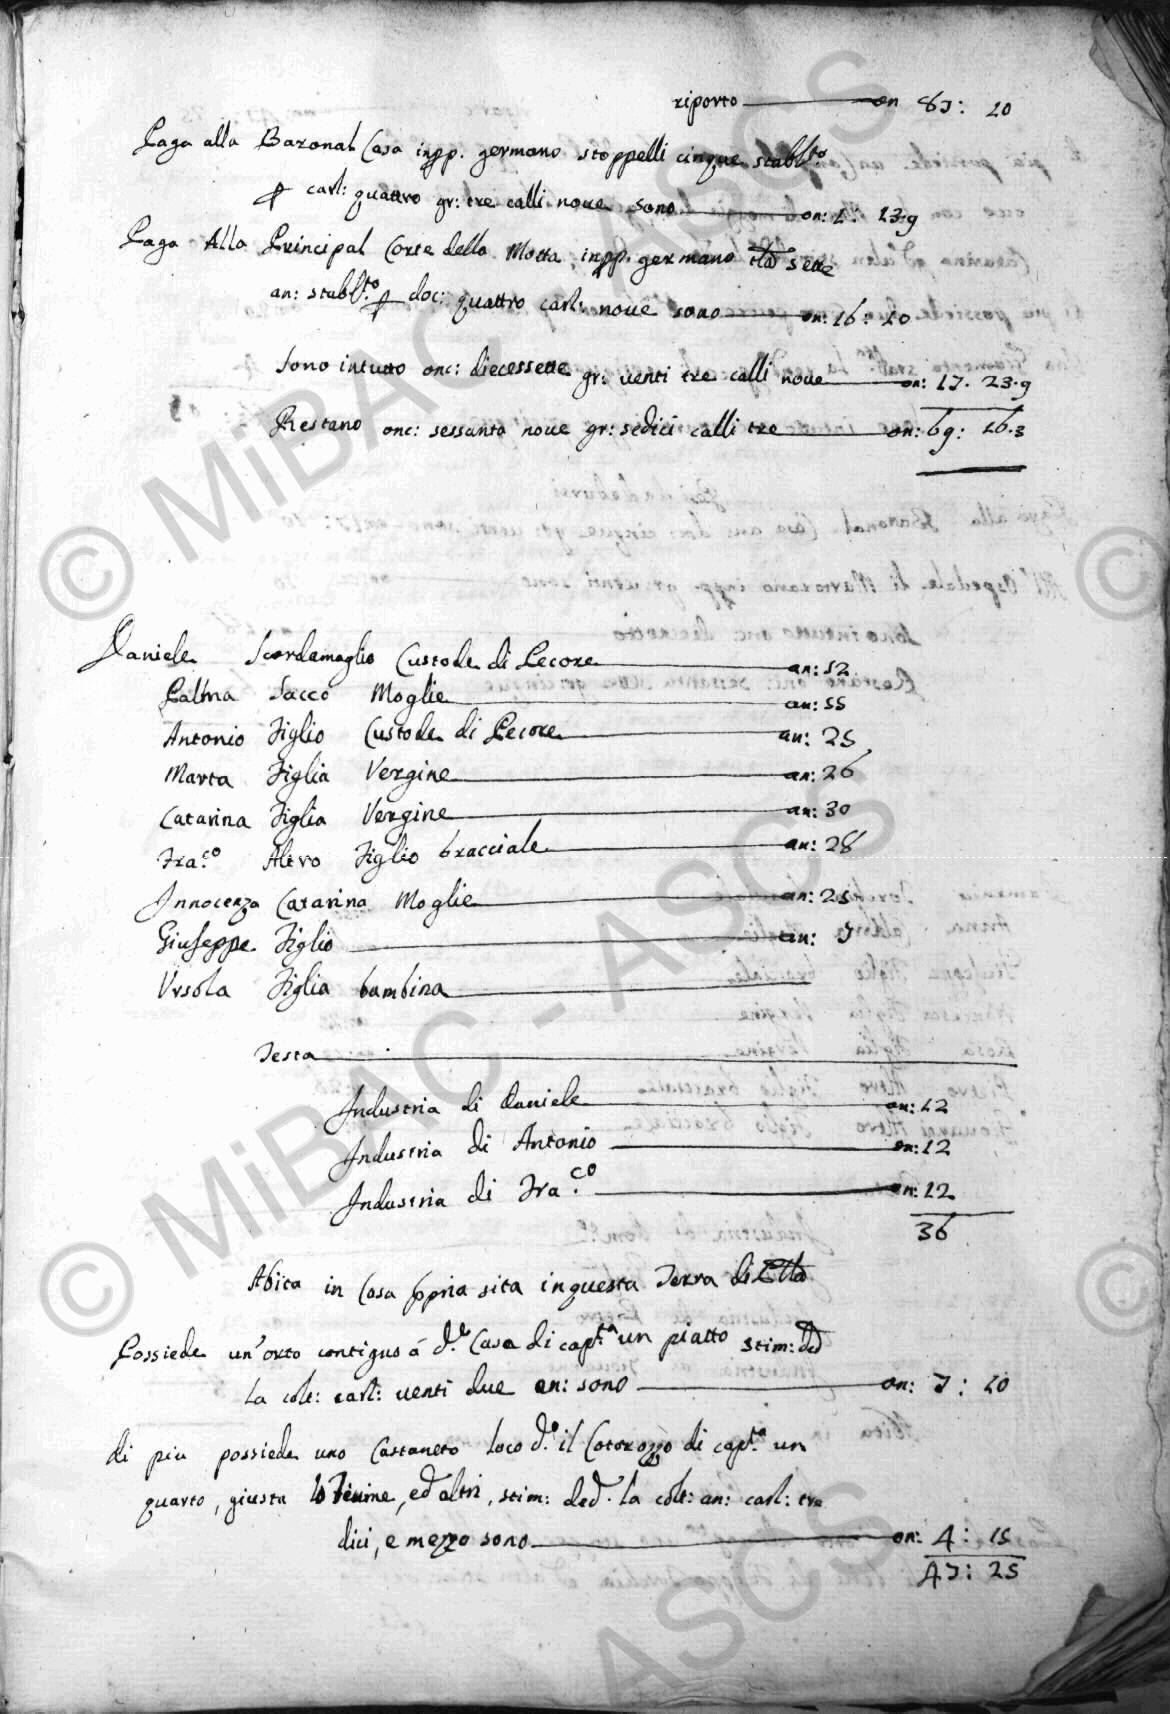 riporto on 87: 10
Paga alla Baronal Casa inpp. germano stoppelli cinque stabl.to
carl: quattro gr: tre calli nove sono on: 1: 13.9
Paga Alla Principal Corte della Motta, inpp. germano sette
an: stabl.to doc: quattro carl: nove sono on: 16: 10
Sono intutto onc: diecessette gr: venti tre calli nove on: 17. 23.9
Restano onc: sessanta nove gr: sedici calli tre on: 69: 16.3
Daniele Scordamaglio Custode di Pecore an: 52
Palma Sacco Moglie an: 55
Antonio Figlio Custode di Pecore an: 25
Marta Figlia Vergine an: 26
Catarina Figlia Vergine an: 30
Fra.co Altro Figlio bracciale an: 28
Innocenza Catarina Moglie an: 25
Giuseppe Figlio an: 7
Ursola Figlia bambina
Testa
Industria di Daniele on: 12
Industria di Antonio on: 12
Industria di Fra.co on: 12
36
Abita in Casa ppria sita in questa Terra di
Possiede un'orto contiguo á d.a Casa di cap.ta un piatto stim: ded
la colt: carl: venti due an: sono on: 7: 10
di piu possiede uno Castaneto loco d.o il Cotorozzo di cap.ta un
quarto, giusta, ed altri, stim: ded. la colt: an: carl: tre
dici, e mezzo sono on: 4: 15
47: 25
© MiBAC - ASCS
© MiBAC - ASCS
ASCS
©
©